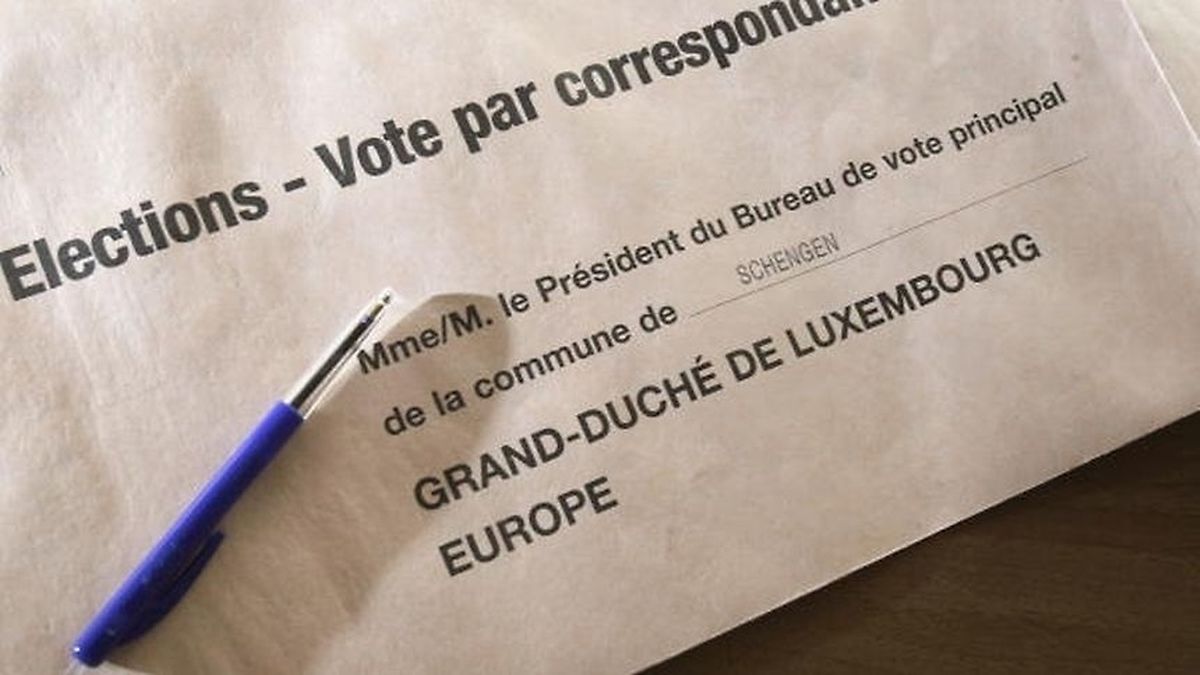 Elections - Vote par correspondan
Mme/M. le Président du Bureau de vote principal
de la commune de SCHENGEN
GRAND-DUCHÉ DE LUXEMBOURG
EUROPE